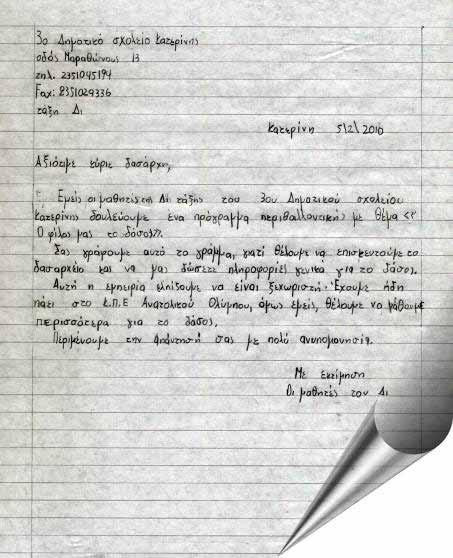 3ο Δημοτικό σχολείο Κατερίνης
οδός Μαραθώνος 13
τηλ. 2351045194
Fax: 2351029336
τάξη Δ1
Κατερίνη 5/2/2010
Αξιότιμε κύριε δασάρχη,
Εμείς οι μαθητές της Δ1 τάξης του 3ου Δημοτικού σχολείου
Κατερίνης δουλεύουμε ένα πρόγραμμα περιβαλλοντικής με θέμα <<
Ο φίλος μας το δάσος>>.
Σας γράφουμε αυτό το γράμμα, γιατί θέλουμε να επισκεφτούμε το
δασαρχείο και να μας δώσετε πληροφορίες γενικά για το δάσος.
Αυτή η εμπειρία ελπίζουμε να είναι ξεχωριστή. Έχουμε ήδη
πάει στο Κ.Π.Ε Ανατολικού Ολύμπου, όμως εμείς, θέλουμε να μάθουμε
περισσότερα για το δάσος.
Περιμένουμε την απάντησή σας με πολύ ανυπομονησία.
Με εκτίμηση
Οι μαθητές του Δ1